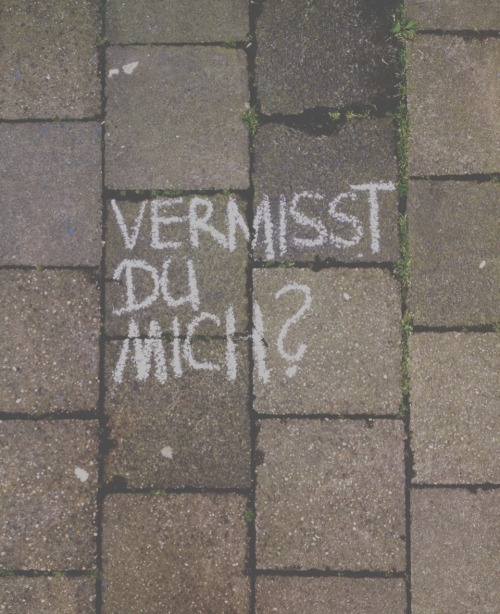 VERMISST
DU
MICH?